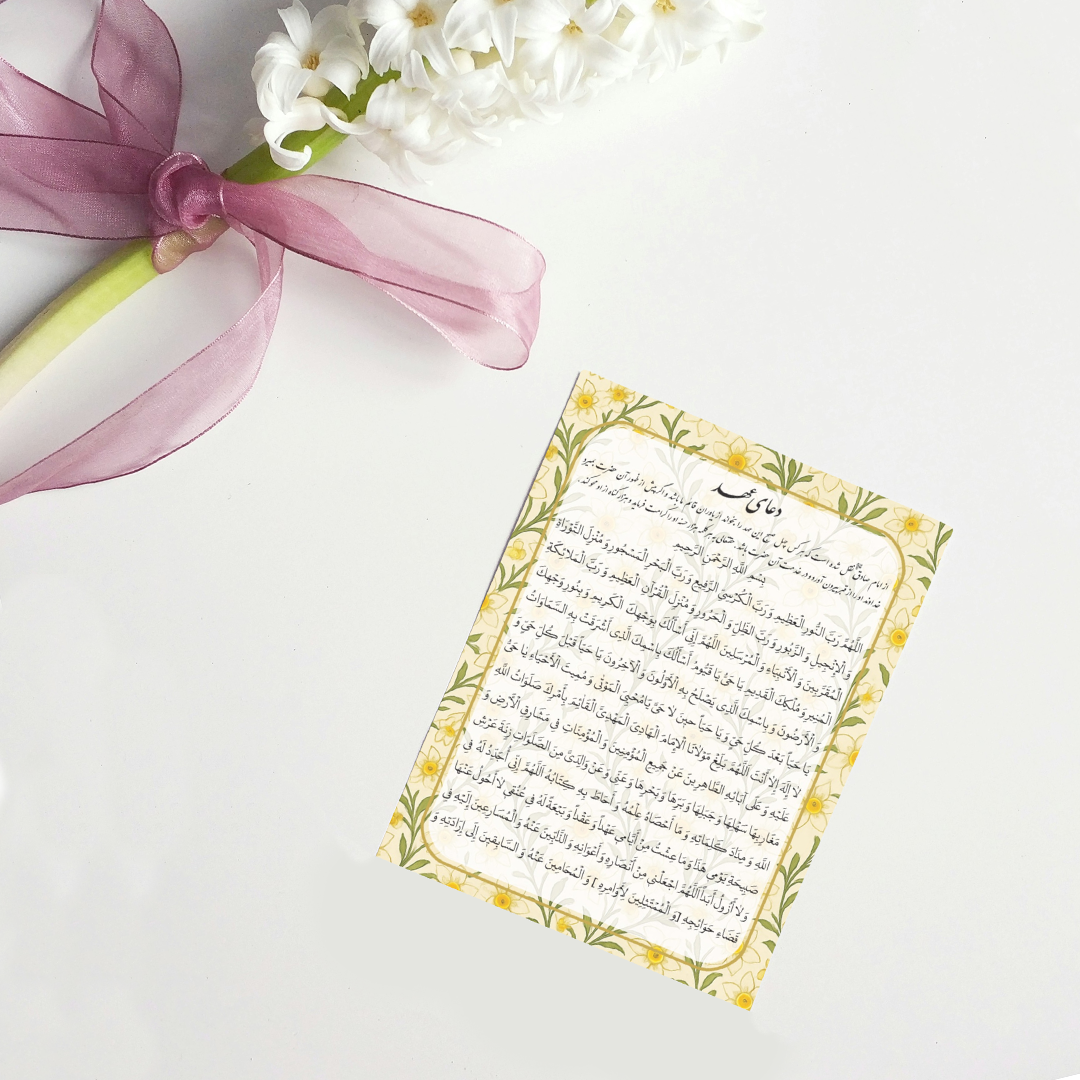 دعای عهد
از امام صادق نقل شده است که هر کس چهل صبح این عهد را بخواند از یاوران قائم ما باشد و اگر پیش از ظهور آن حضرت بمیرد
خدا او را از قبر بیرون آورد و در خدمت آن حضرت باشد حقتعالی به هر کلمه هزار حسنه او را کرامت فرماید و هزار گناه از او محو کند.
بِسْمِ اللَّهِ الرَّحْمَنِ الرَّحِيمِ
اَللَّهُمَّ رَبَّ النُّورِ الْعَظِيمِ وَ رَبَّ الْكُرْسِيِّ الرَّفِيعِ وَ رَبَّ الْبَحْرِ الْمَسْجُورِ وَ مُنْزِلَ التَّوْرَاةِ
وَ الْإِنْجِيلِ وَ الزَّبُورِ وَ رَبَّ الظِّلِّ وَ الْحَرُورِ وَ مُنْزِلَ الْقُرْآنِ الْعَظِيمِ وَ رَبَّ الْمَلَائِكَةِ
الْمُقَرَّبِينَ وَ الْأَنْبِيَاءِ وَ الْمُرْسَلِينَ اللَّهُمَّ إِنِّي أَسْأَلُكَ بِوَجْهِكَ الْكَرِيمِ وَ بِنُورِ وَجْهِكَ
الْمُنِيرِ وَ مُلْكِكَ الْقَدِيمِ يَا حَيُّ يَا قَيُّومُ أَسْأَلُكَ بِاسْمِكَ الَّذِي أَشْرَقَتْ بِهِ السَّمَاوَاتُ
وَ الْأَرَضُونَ وَ بِاسْمِكَ الَّذِي يَصْلَحُ بِهِ الْأَوَّلُونَ وَ الْآخِرُونَ يَا حَيّاً قَبْلَ كُلِّ حَيٍّ وَ
يَا حَيّاً بَعْدَ كُلِّ حَيٍّ وَ يَا حَيّاً حِينَ لَا حَيَّ يَا مُحْيِيَ الْمَوْتَى وَ مُمِيتَ الْأَحْيَاءِ يَا حَيُّ
لَا إِلَهَ إِلَّا أَنْتَ اللَّهُمَّ بَلِّغْ مَوْلَانَا الْإِمَامَ الْهَادِيَ الْمَهْدِيَّ الْقَائِمَ بِأَمْرِكَ صَلَوَاتُ اللَّهِ
عَلَيْهِ وَ عَلَى آبَائِهِ الطَّاهِرِينَ عَنْ جَمِيعِ الْمُؤْمِنِينَ وَ الْمُؤْمِنَاتِ فِي مَشَارِقِ الْأَرْضِ وَ
مَغَارِبِهَا سَهْلِهَا وَ جَبَلِهَا وَ بَرِّهَا وَ بَحْرِهَا وَ عَنِّي وَ عَنْ وَالِدَيَّ مِنَ الصَّلَوَاتِ زِنَةَ عَرْشِ
اللَّهِ وَ مِدَادَ كَلِمَاتِهِ وَ مَا أَحْصَاهُ عِلْمُهُ وَ أَحَاطَ بِهِ كِتَابُهُ اللَّهُمَّ إِنِّي أُجَدِّدُ لَهُ فِي
صَبِيحَةِ يَوْمِي هَذَا وَ مَا عِشْتُ مِنْ أَيَّامِي عَهْداً وَ عَقْداً وَ بَيْعَةً لَهُ فِي عُنُقِي لَا أَحُولُ عَنْهَا
وَ لَا أَزُولُ أَبَداً اللَّهُمَّ اجْعَلْنِي مِنْ أَنْصَارِهِ وَ أَعْوَانِهِ وَ الذَّابِّينَ عَنْهُ وَ الْمُسَارِعِينَ إِلَيْهِ فِي
قَضَاءِ حَوَائِجِهِ [وَ الْمُمْتَثِلِينَ لِأَوَامِرِهِ] وَ الْمُحَامِينَ عَنْهُ وَ السَّابِقِينَ إِلَى إِرَادَتِهِ وَ